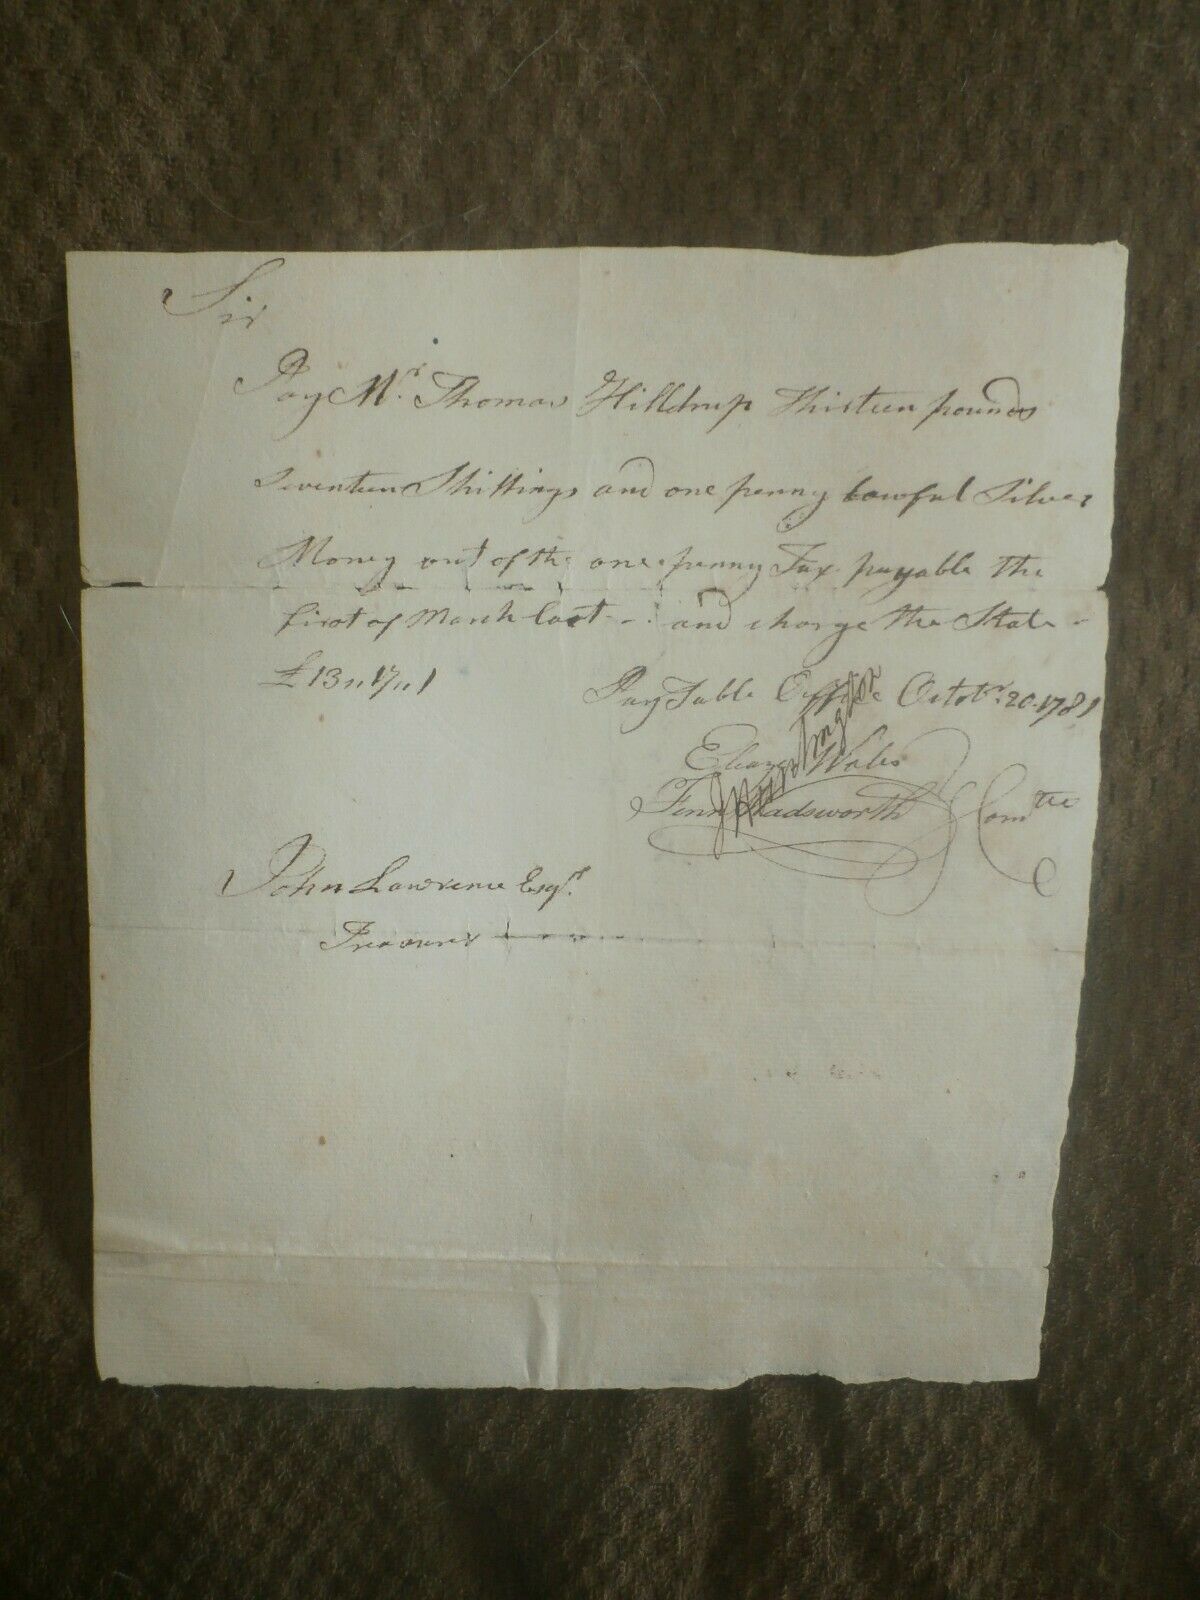 Sir
Pay Mr. Thomas Hilldrup Thirteen pounds
Seventeen Shillings and one penny Lawful Silver
Money out of the one penny Tax payable the
first of March last - and charge the State -
£13"17"1
Pay Table Office Octobr. 20. 1781
Eleazer Wales
Fenn Wadsworth
Comtee
Huntington
John Lawrence Esqr.
Treasurer